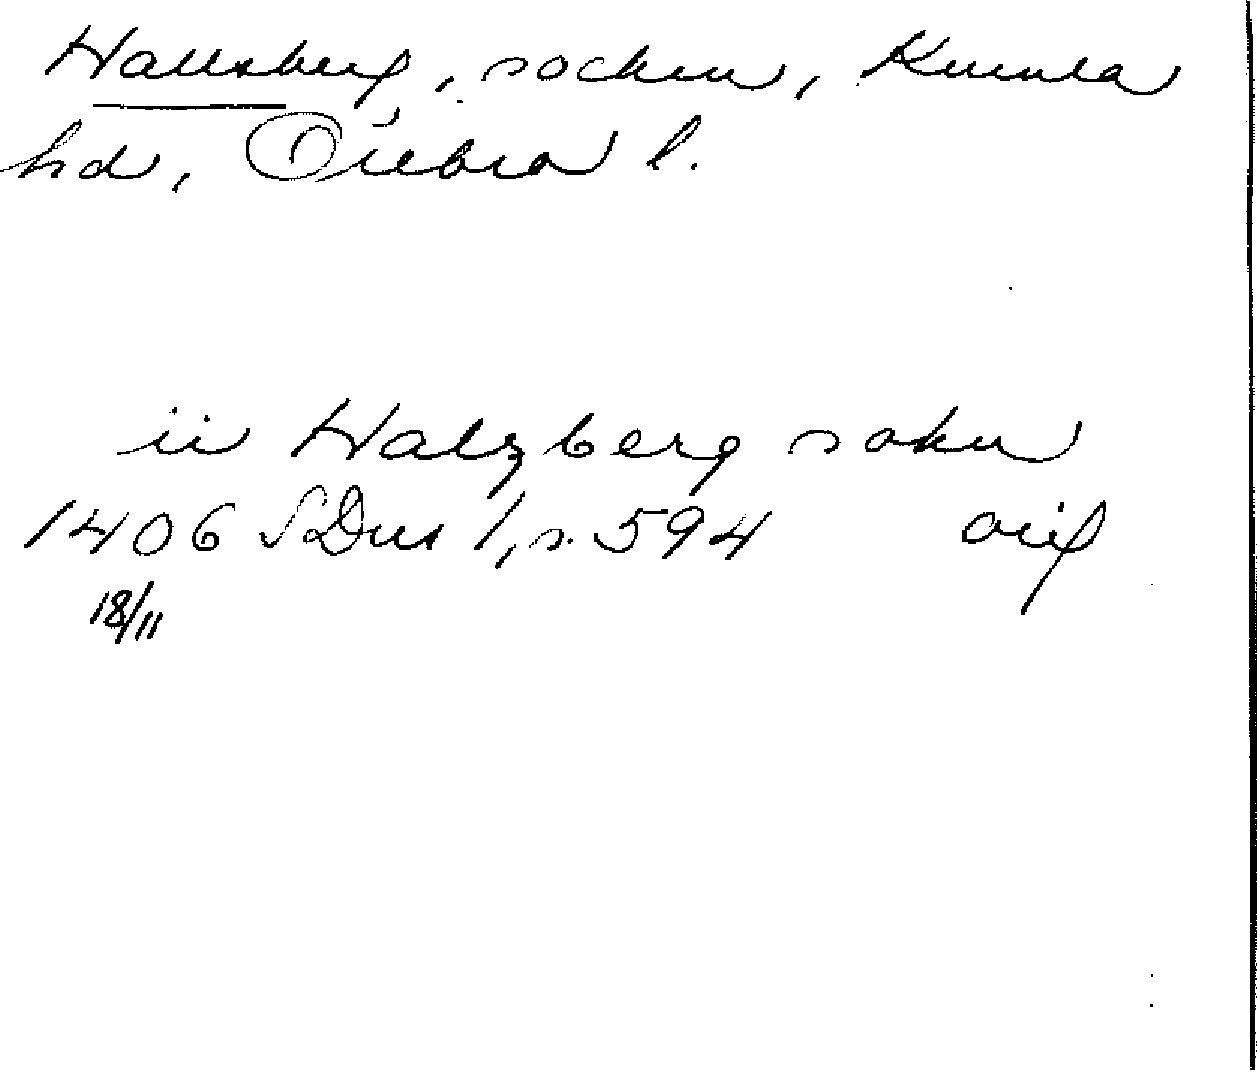 Hallsberg, socken, Kumla
hd, Örebro l.
in Halzberg sokn
1406 SDns 1, s. 594 orig
18/11